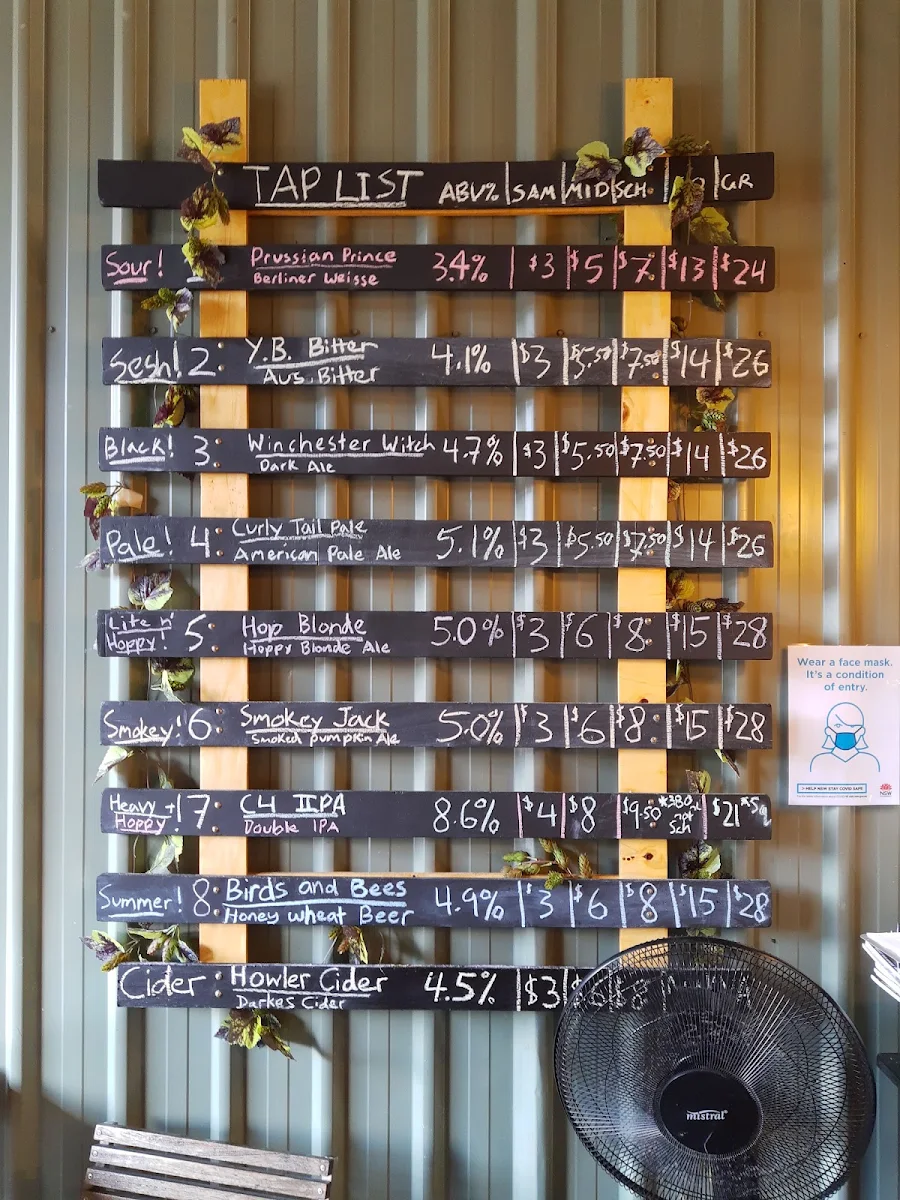 TAP LIST ABV% SAM MID SCH. GR
Sour! Prussian Prince 3.4% $3 $5 $7 $13 $24
Berliner Weisse
Sesh! 2 Y.B. Bitter 4.1% $3 $5.50 $7.50 $14 $26
Aus. Bitter
Black! 3 Winchester Witch 4.7% $3 $5.50 $7.50 $14 $26
Dark Ale
Pale! 4 Curly Tail Pale 5.1% $3 $5.50 $7.50 $14 $26
American Pale Ale
Lite n' Hoppy! 5 Hop Blonde 5.0% $3 $6 $8 $15 $28
Hoppy Blonde Ale
Smokey! 6 Smokey Jack 5.0% $3 $6 $8 $15 $28
Smoked Pumpkin Ale
Heavy + Hoppy! 7 C4 IIPA 8.6% $4 $8 $9.50 Sch $21
Double IPA
Summer! 8 Birds and Bees 4.9% $3 $6 $8 $15 $28
Honey wheat Beer
Cider Howler Cider 4.5% $3 $6 $8
Darkes Cider
Wear a face mask.
It's a condition
of entry.
HELP NSW STAY COVID SAFE
NSW
mistral